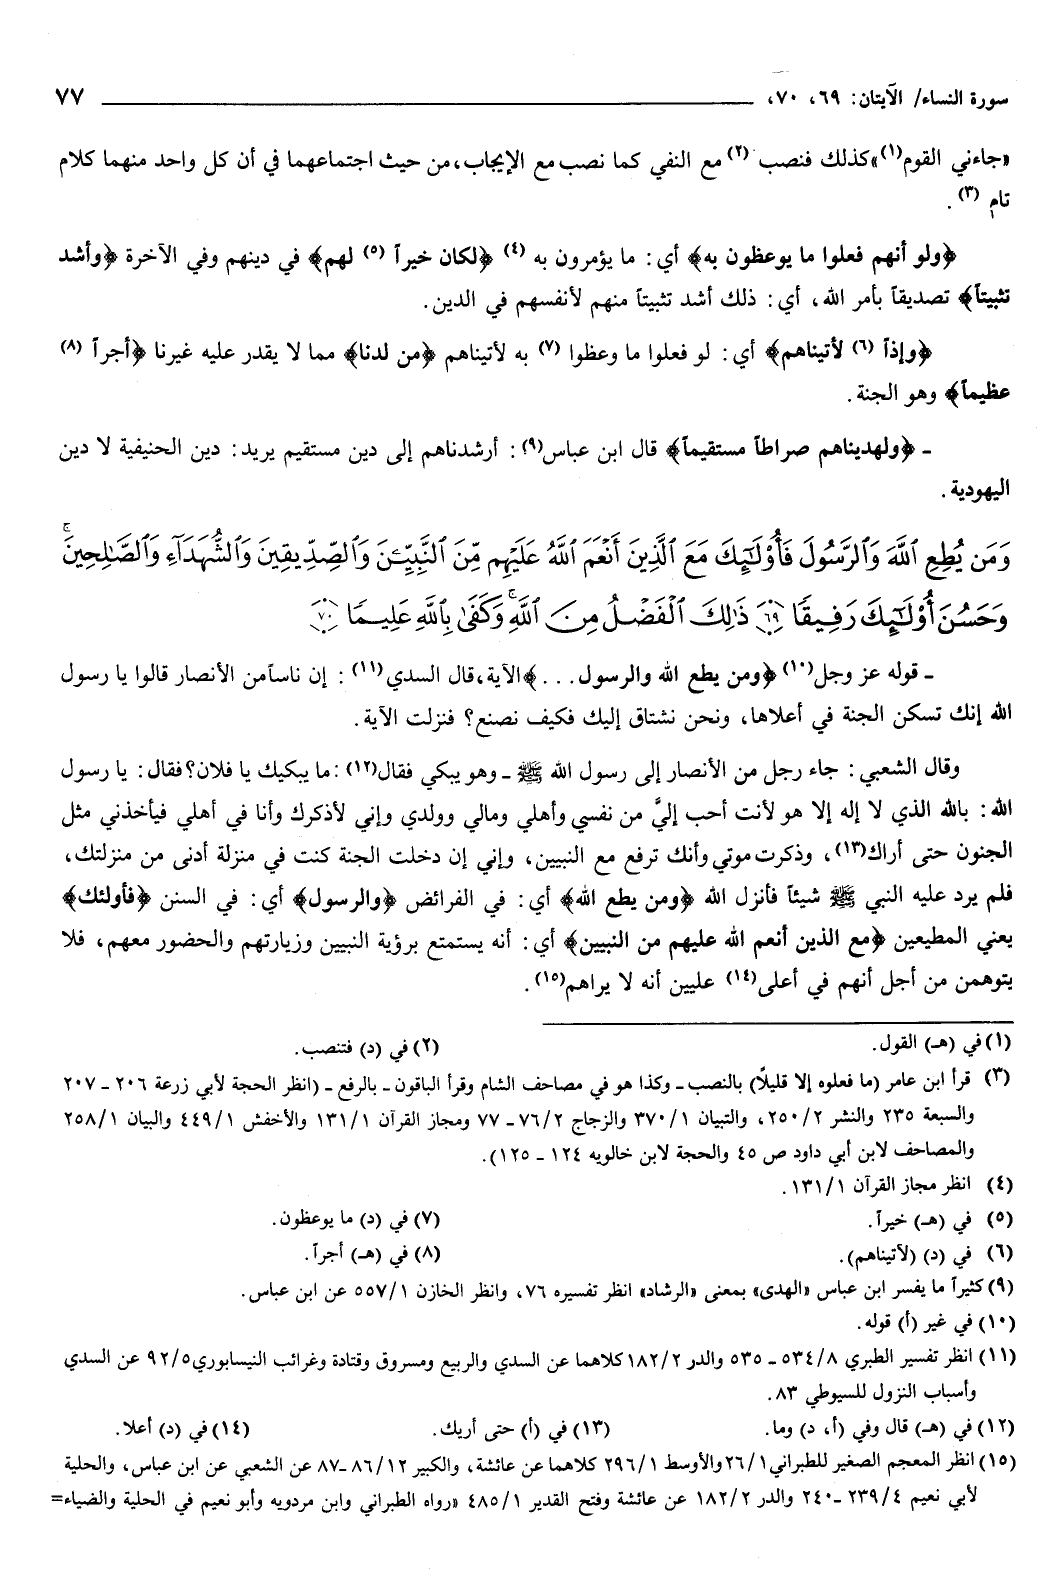 سورة النساء/ الآيتان: ٦٩، ٧٠، ٧٧
«جاءني القوم(١)»كذلك فنصب (٢) مع النفي كما نصب مع الإيجاب،من حيث اجتماعهما في أن كل واحد منهما كلام
تام (٣) .
﴿ولو أنهم فعلوا ما يوعظون به﴾ أي: ما يؤمرون به (٤) ﴿لكان خيراً (٥) لهم﴾ في دينهم وفي الآخرة ﴿وأشد
تثبيتاً﴾ تصديقاً بأمر الله، أي: ذلك أشد تثبيتاً منهم لأنفسهم في الدين.
﴿وإذاً (٦) لأتيناهم﴾ أي: لو فعلوا ما وعظوا (٧) به لأتيناهم ﴿من لدنا﴾ مما لا يقدر عليه غيرنا ﴿أجراً (٨)
عظيماً﴾ وهو الجنة.
ـ ﴿ولهديناهم صراطاً مستقيماً﴾ قال ابن عباس(٩) : أرشدناهم إلى دين مستقيم يريد: دين الحنيفية لا دين
اليهودية.
وَمَن يُطِعِ ٱللَّهَ وَٱلرَّسُولَ فَأُو۟لَٰٓئِكَ مَعَ ٱلَّذِينَ أَنْعَمَ ٱللَّهُ عَلَيْهِم مِّنَ ٱلنَّبِيِّـۧنَ وَٱلصِّدِّيقِينَ وَٱلشُّهَدَآءِ وَٱلصَّٰلِحِينَ ۚ
وَحَسُنَ أُو۟لَٰٓئِكَ رَفِيقًا ﴿٦٩﴾ ذَٰلِكَ ٱلْفَضْلُ مِنَ ٱللَّهِ ۚ وَكَفَىٰ بِٱللَّهِ عَلِيمًا ﴿٧٠﴾
ـ قوله عز وجل(١٠) ﴿ومن يطع الله والرسول...﴾الآية،قال السدي (١١) : إن ناساًمن الأنصار قالوا يا رسول
الله إنك تسكن الجنة في أعلاها، ونحن نشتاق إليك فكيف نصنع؟ فنزلت الآية.
وقال الشعبي: جاء رجل من الأنصار إلى رسول الله ﷺ ـ وهو يبكي فقال(١٢) :ما يبكيك يا فلان؟فقال: يا رسول
الله: بالله الذي لا إله إلا هو لأنت أحب إليَّ من نفسي وأهلي ومالي وولدي وإني لأذكرك وأنا في أهلي فيأخذني مثل
الجنون حتى أراك(١٣)، وذكرت موتي وأنك ترفع مع النبيين، وإني إن دخلت الجنة كنت في منزلة أدنى من منزلتك،
فلم يرد عليه النبي ﷺ شيئاً فأنزل الله ﴿ومن يطع الله﴾ أي: في الفرائض ﴿والرسول﴾ أي: في السنن ﴿فأولئك﴾
يعني المطيعين ﴿مع الذين أنعم الله عليهم من النبيين﴾ أي: أنه يستمتع برؤية النبيين وزيارتهم والحضور معهم، فلا
يتوهمن من أجل أنهم في أعلى(١٤) عليين أنه لا يراهم(١٥).
(١) في (هـ) القول. (٢) في (د) فتنصب.
(٣) قرأ ابن عامر (ما فعلوه إلا قليلاً) بالنصب ـ وكذا هو في مصاحف الشام وقرأ الباقون ـ بالرفع ـ (انظر الحجة لأبي زرعة ٢٠٦ ـ ٢٠٧
والسبعة ٢٣٥ والنشر ٢/ ٢٥٠، والتبيان ١/ ٣٧٠ والزجاج ٢/ ٧٦ ـ ٧٧ ومجاز القرآن ١/ ١٣١ والأخفش ١/ ٤٤٩ والبيان ١/ ٢٥٨
والمصاحف لابن أبي داود ص ٤٥ والحجة لابن خالويه ١٢٤ ـ ١٢٥).
(٤) انظر مجاز القرآن ١/ ١٣١.
(٥) في (هـ) خيراً. (٧) في (د) ما يوعظون.
(٦) في (د) (لآتيناهم). (٨) في (هـ) أجراً.
(٩) كثيراً ما يفسر ابن عباس «الهدى» بمعنى «الرشاد» انظر تفسيره ٧٦، وانظر الخازن ١/ ٥٥٧ عن ابن عباس.
(١٠) في غير (أ) قوله.
(١١) انظر تفسير الطبري ٨/ ٥٣٤ ـ ٥٣٥ والدر ٢/ ١٨٢كلاهما عن السدي والربيع ومسروق وقتادة وغرائب النيسابوري٥/ ٩٢ عن السدي
وأسباب النزول للسيوطي ٨٣.
(١٢) في (هـ) قال وفي (أ، د) وما. (١٣) في (أ) حتى أريك. (١٤) في (د) أعلا.
(١٥) انظر المعجم الصغير للطبراني١/ ٢٦والأوسط ١/ ٢٩٦ كلاهما عن عائشة، والكبير ١٢/ ٨٦ ـ٨٧ عن الشعبي عن ابن عباس، والحلية
لأبي نعيم ٤/ ٢٣٩ ـ٢٤٠ والدر ٢/ ١٨٢ عن عائشة وفتح القدير ١/ ٤٨٥ «رواه الطبراني وابن مردويه وأبو نعيم في الحلية والضياء=